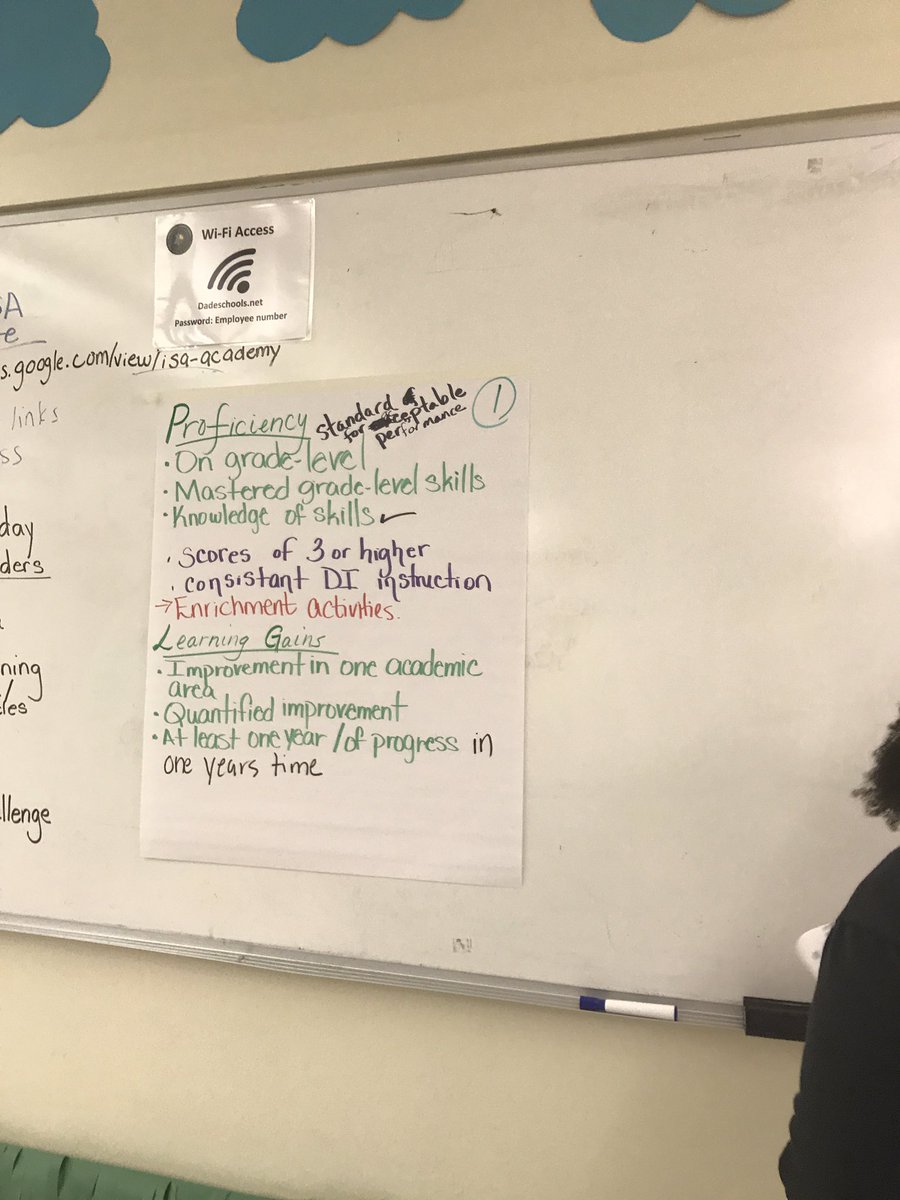 Wi-Fi Access
Dadeschools.net
Password: Employee number
SA
s.google.com/view/isa-academy
links
ss
day
ders
ning
les
llenge
1
Proficiency standard
for acceptable
performance
• On grade-level
• Mastered grade-level skills
• Knowledge of skills ✓
• Scores of 3 or higher
• consistant DI instruction
→ Enrichment activities.
Learning Gains
• Improvement in one academic
area
• Quantified improvement
• At least one year / of progress in
one years time